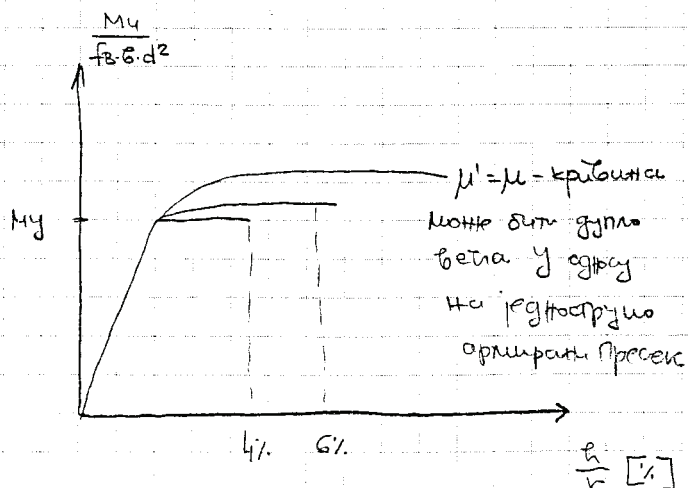 Mu
fB·б·d²
μ' = μ - кривина
може бити дупло
већа у односу
на једноструко
армирани пресек
My
4% 6%
h
r [%]